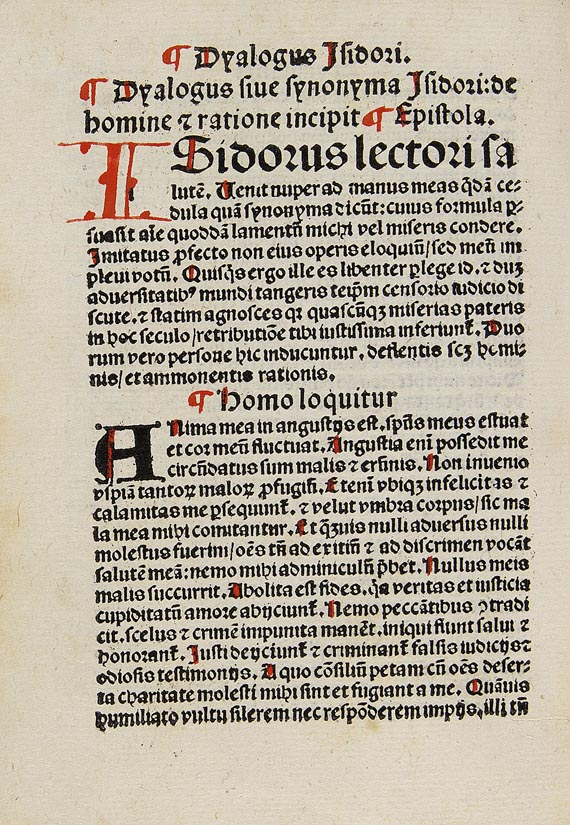 ¶ Dyalogus Isidori.
¶ Dyalogus siue synonyma Isidori: de
homine ⁊ ratione incipit ¶ Epistola.
ISidorus lectori sa
lutē. Uenit nuper ad manus meas q̄dā ce-
dula quā synonyma dicūt: cuius formula ꝑ-
suasit aīe quoddā lamentū michi vel miseris condere.
Imitatus ꝓfecto non eius operis eloquiū/ sed meū im
pleui votū. Quisq̄s ergo ille es libenter ꝑlege id. ⁊ duꝫ
aduersitatibꝰ mundi tangeris teip̄m censorio iudicio di
scute. ⁊ statim agnosces qꝛ quascūqꝫ miserias pateris
in hoc seculo/ retributiōe tibi iustissima inferiunt᷑. Duo
rum vero persone hic inducuntur. deflentis scꝫ homi-
nis/ et ammonentis rationis.
¶ Homo loquitur
ANima mea in angustijs est. spūs meus estuat
et cor meū fluctuat. Angustia enī possedit me
circūdatus sum malis ⁊ erūnis. Non inuenio
vspiā tantoꝝ maloꝝ ꝓfugiū. Etenī vbiqꝫ infelicitas ⁊
calamitas me ꝑsequunt᷑. ⁊ velut vmbra corpus/ sic ma
la mea mihi comitantur. Et qꝫuis nulli aduersus nulli
molestus fuerim/ oēs tn̄ ad exitiū ⁊ ad discrimen vocāt
salutē meā: nemo mihi adminiculū p̄bet. Nullus meis
malis succurrit. Abolita est fides. q̄a veritas et iusticia
cupiditatū amore abijciunt᷑. Nemo peccātibus ꝯtradi
cit. scelus ⁊ crimē impunita manēt. iniqui fiunt salui ⁊
honorant᷑. Justi deijciunt᷑ ⁊ criminant᷑ falsis iudicijs ⁊
odiosis testimonijs. A quo cōsiliū petam cū oēs deser-
ta charitate molesti mihi sint et fugiant a me. Quāuis
humiliato vultu silerem nec respōderem impijs. illi tn̄